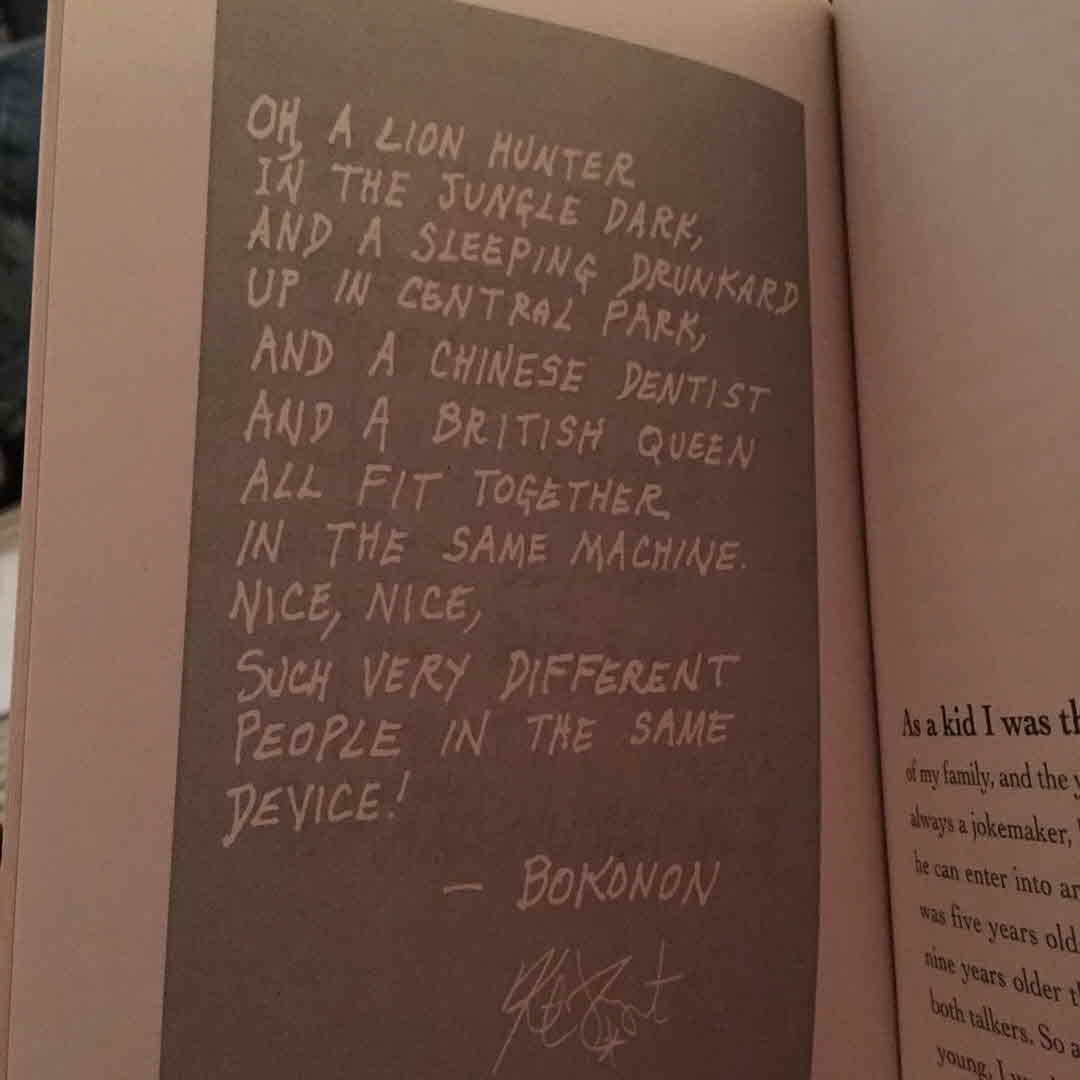 OH, A LION HUNTER
IN THE JUNGLE DARK,
AND A SLEEPING DRUNKARD
UP IN CENTRAL PARK,
AND A CHINESE DENTIST
AND A BRITISH QUEEN
ALL FIT TOGETHER
IN THE SAME MACHINE.
NICE, NICE,
SUCH VERY DIFFERENT
PEOPLE IN THE SAME
DEVICE!
— BOKONON
As a kid I was
of my family, and the
always a jokemaker,
he can enter into
was five years old
nine years older
both talkers. So
young, I